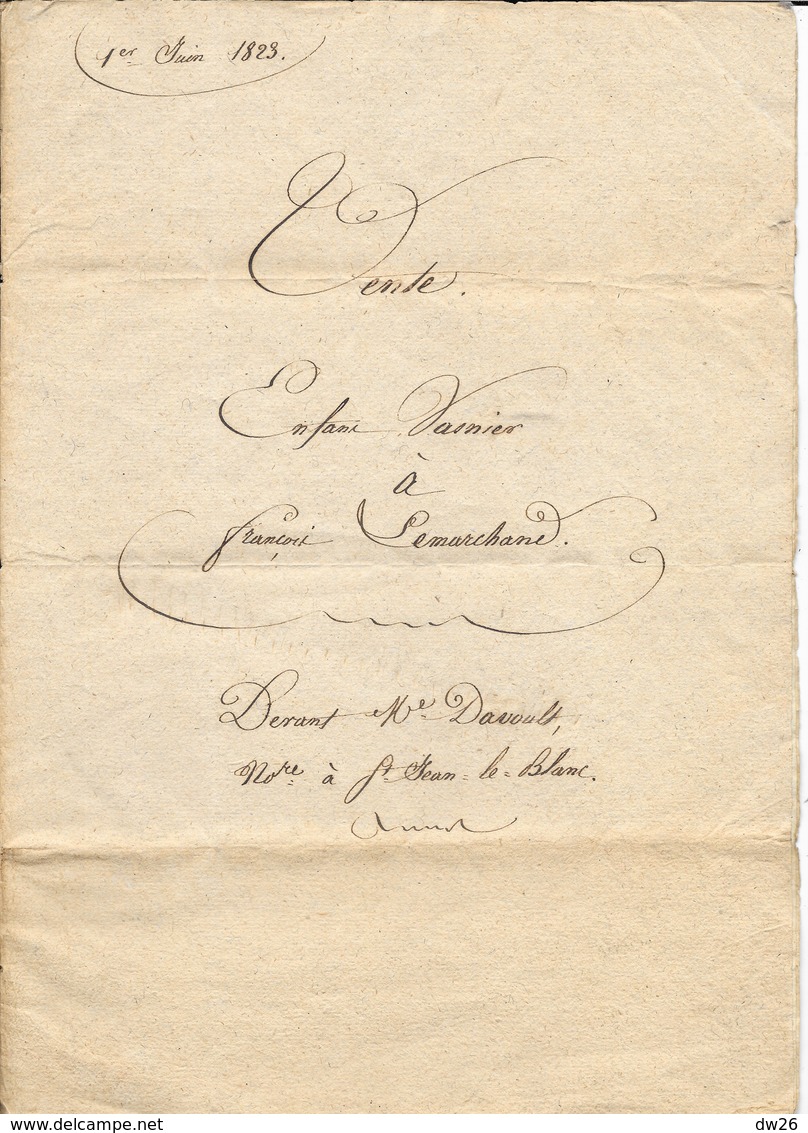 1er Juin 1823.
Vente.
Enfans Vasnier
à
françois Lemarchand.
Devant Me. Davoult,
Nore. à St. Jean-le-Blanc.
www.delcampe.net
dw26